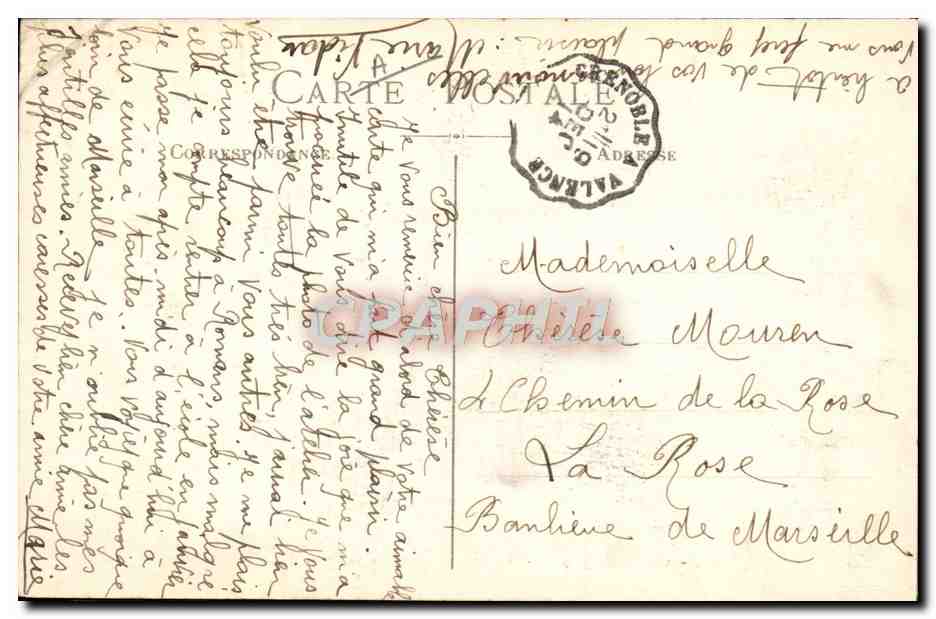 CARTE POSTALE
CORRESPONDENCE
ADRESSE
GRENOBLE A VALENCE
Bien chère Thérèse
Je vous remercie d'abord de votre aimable
carte qui m'a fait grand plaisir.
Inutile de vous dire la joie que m'a
procurée la photo de l'atelier. Je vous
trouve toutes très bien, j'aurai bien
voulu être parmi vous autres. Je me plais
toujours beaucoup à Romans, mais malgré
cela je compte rentrer à l'école en janvier
Je passe mon après-midi d'aujourd'hui à
vous écrire à toutes. Vous voyez que quoique
loin de Marseille je n'oublie pas mes
gentilles amies. Recevez bien chère amie les
plus affectueuses caresses de votre amie Marie
à bientôt de vos nouvelles
Vous me ferez grand plaisir. Marie Vidal
Mademoiselle
Thérèse Mouren
4 Chemin de la Rose
La Rose
Banlieue de Marseille
CPAPHIL